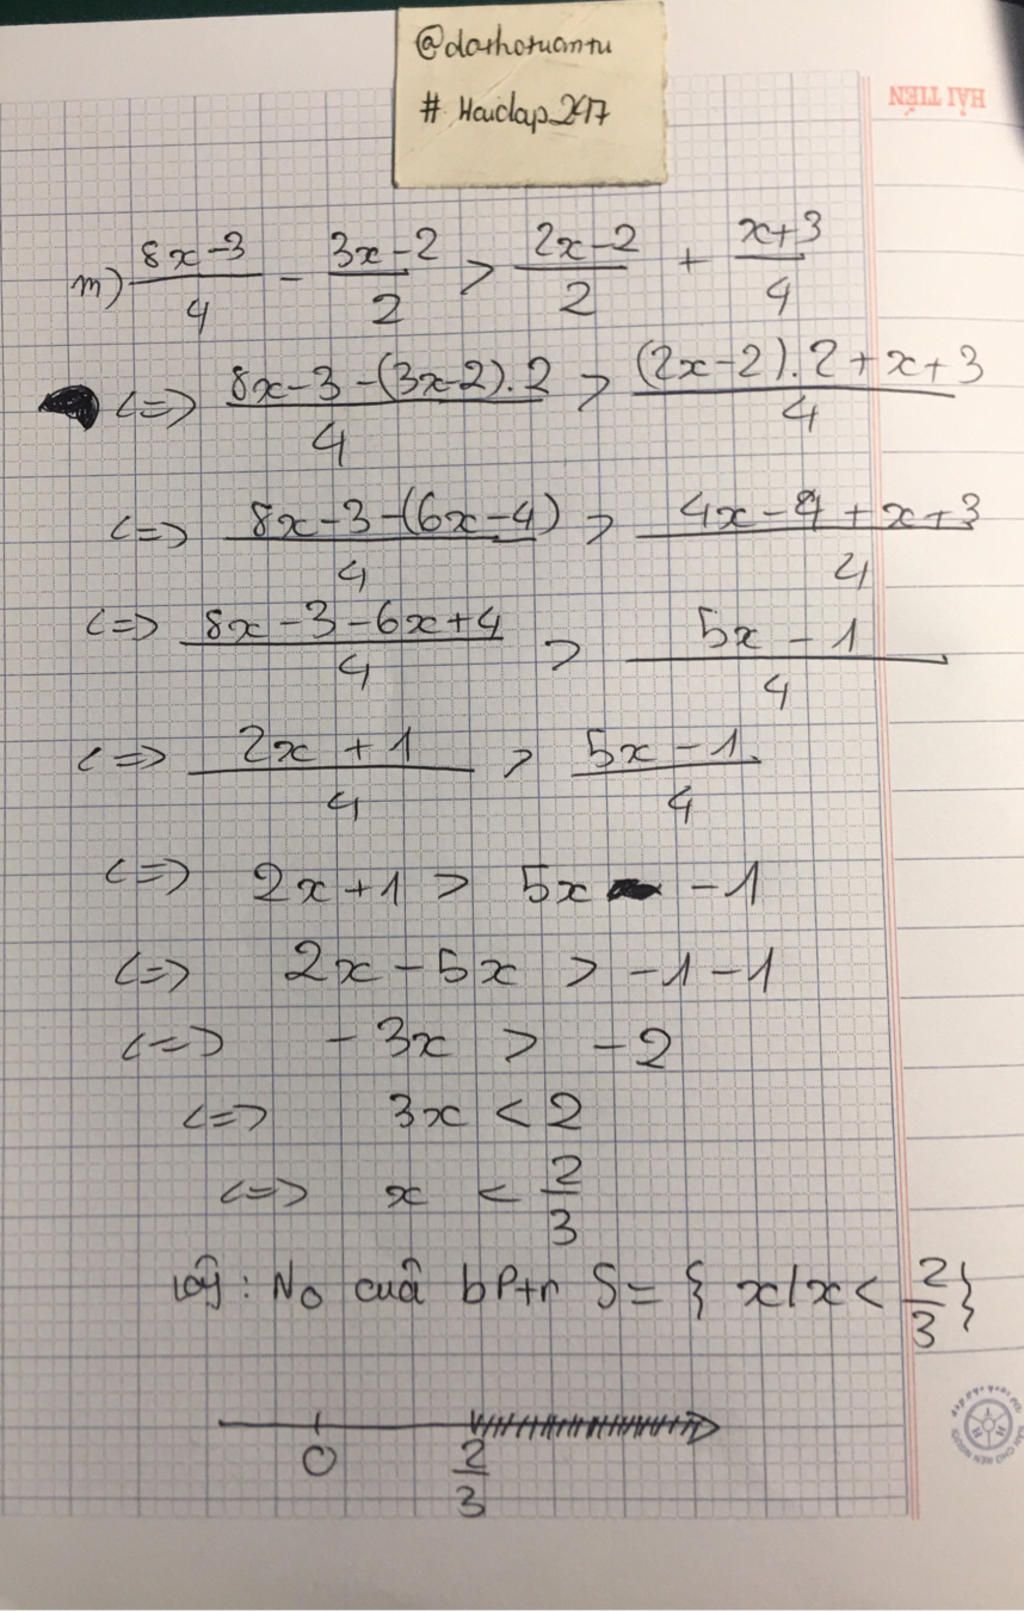 @dathotuantu
# Hoidap247
HẢI TIẾN
m) \frac{8x-3}{4} - \frac{3x-2}{2} > \frac{2x-2}{2} + \frac{x+3}{4}
<=> \frac{8x-3-(3x-2).2}{4} > \frac{(2x-2).2+x+3}{4}
<=> \frac{8x-3-(6x-4)}{4} > \frac{4x-4+x+3}{4}
<=> \frac{8x-3-6x+4}{4} > \frac{5x-1}{4}
<=> \frac{2x+1}{4} > \frac{5x-1}{4}
<=> 2x+1 > 5x -1
<=> 2x-5x > -1-1
<=> -3x > -2
<=> 3x < 2
<=> x < \frac{2}{3}
Vậy: No của bptr S = { x/x < \frac{2}{3} }
0 \frac{2}{3}